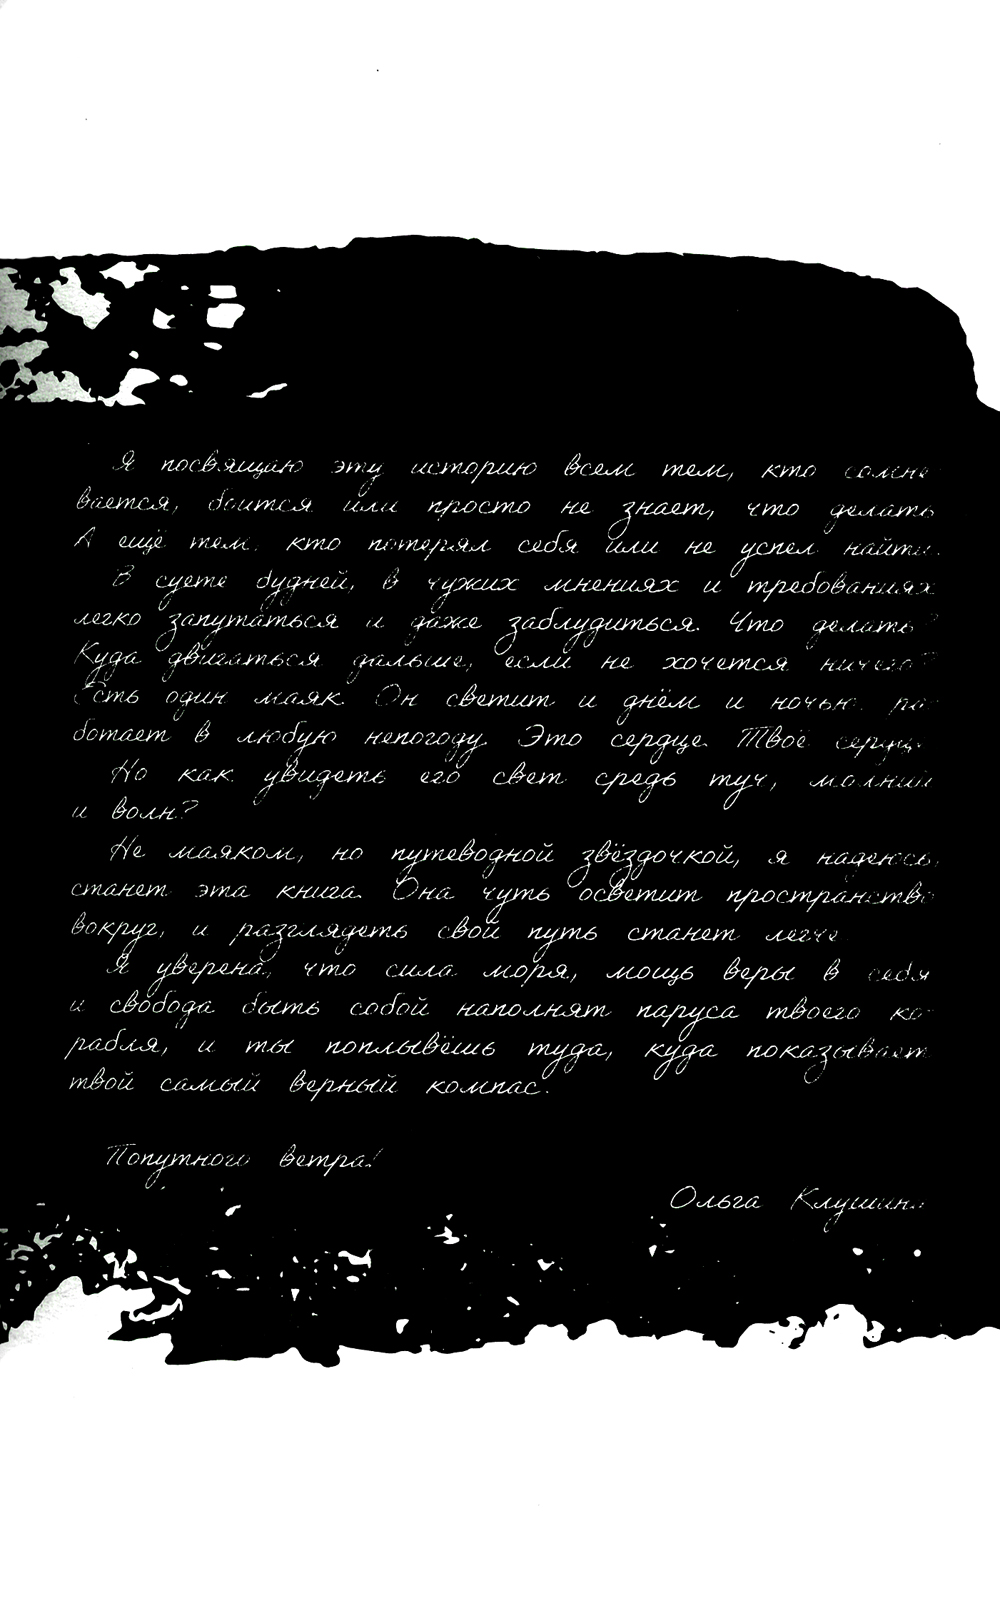 Я посвящаю эту историю всем тем, кто сомне-
вается, боится или просто не знает, что делать.
А ещё тем, кто потерял себя или не успел найти.
В суете будней, в чужих мнениях и требованиях
легко запутаться и даже заблудиться. Что делать?
Куда двигаться дальше, если не хочется ничего?
Есть один маяк. Он светит и днём и ночью, ра-
ботает в любую непогоду. Это сердце. Твоё сердце.
Но как увидеть его свет средь туч, молний
и волн?
Не маяком, но путеводной звёздочкой, я надеюсь,
станет эта книга. Она чуть осветит пространство
вокруг, и разглядеть свой путь станет легче.
Я уверена, что сила моря, мощь веры в себя
и свобода быть собой наполнят паруса твоего ко-
рабля, и ты поплывёшь туда, куда показывает
твой самый верный компас.
Попутного ветра!
Ольга Клушина